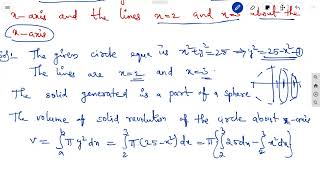 x-axis and the lines x=2 and x=3 about the
x-axis
Sol: The given circle equn is x²+y²=25 → y²=25-x² →①
The lines are x=2 and x=3.
The solid generated is a part of a sphere
The volume of solid revolution of the circle about x-axis
V = ∫ₐᵇ π y² dx = ∫₂³ π(25-x²) dx = π{∫₂³ 25dx - ∫₂³ x²dx}